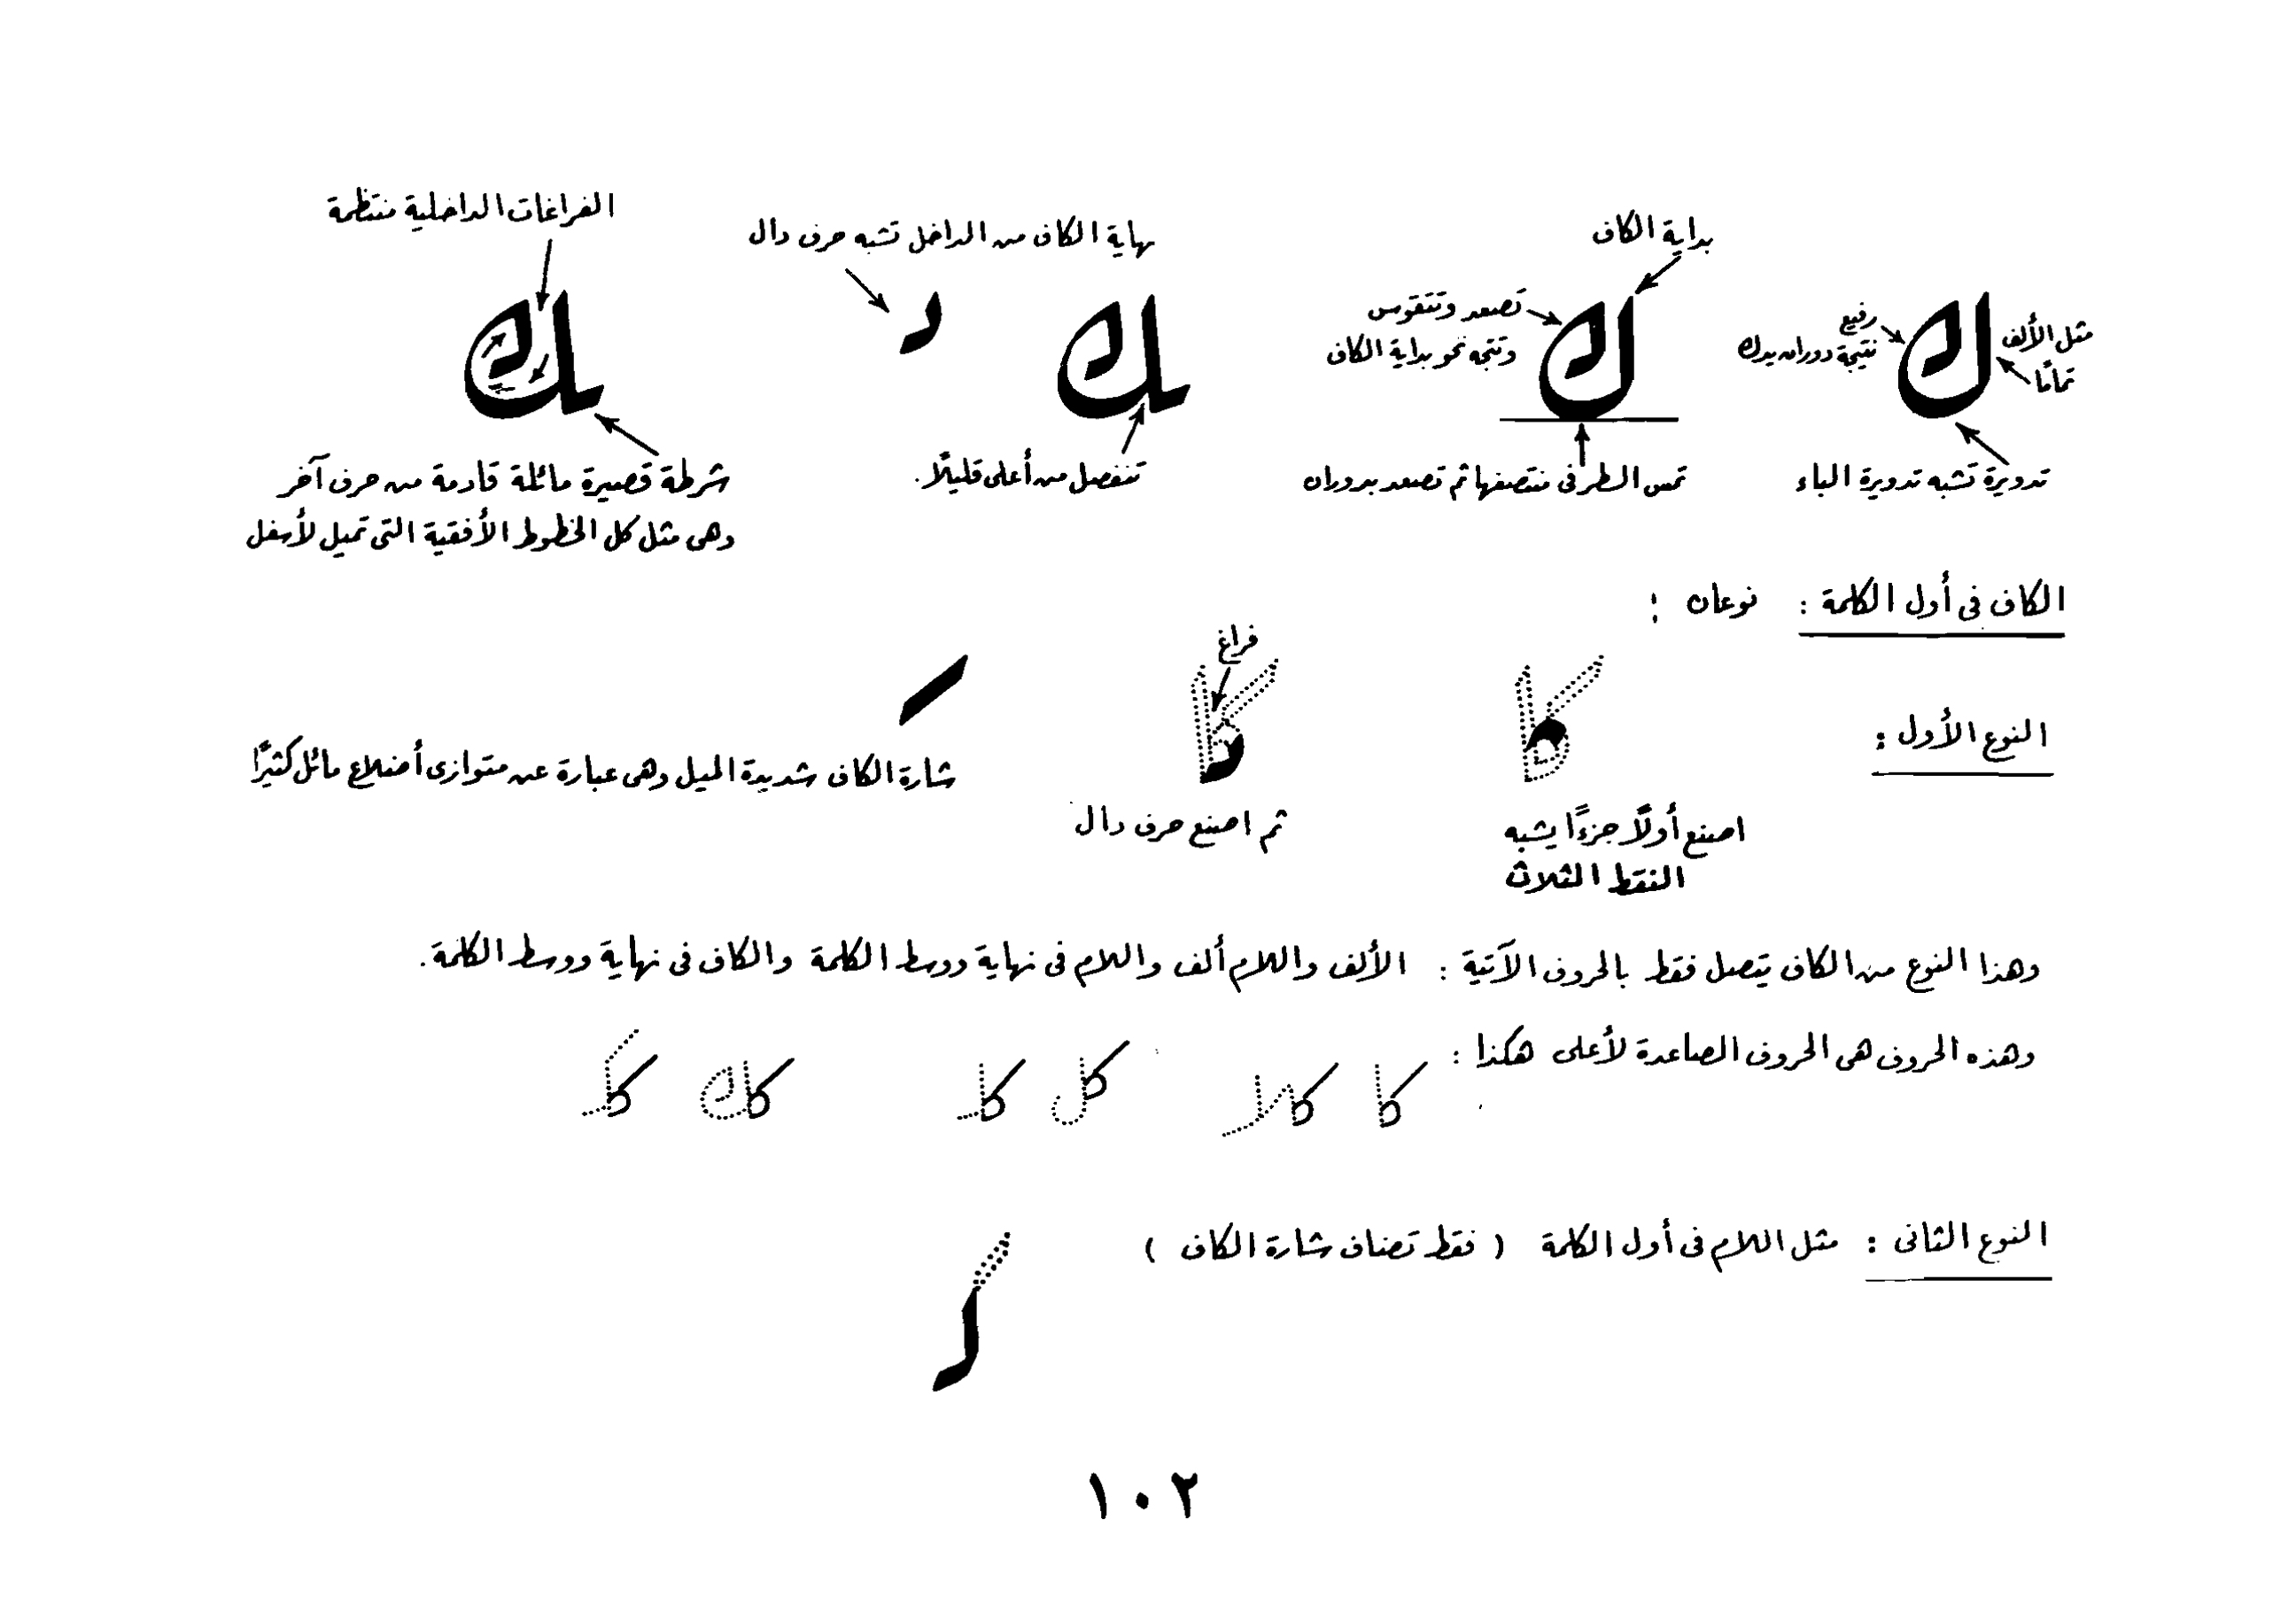 بداية الكاف
مثل الألف
تمامًا
رفيع
نتيجة دوران يدك
تدويرة تشبه تدويرة الباء
تصعد وتتقوس
وتتجه نحو بداية الكاف
تمس السطر فى منتصفها ثم تصعد بدوران
نهاية الكاف من الداخل تشبه حرف دال
تنفصل من أعلى قليلًا.
الفراغات الداخلية منتظمة
شرطة قصيرة مائلة قادمة من حرف آخر
وهى مثل كل الخطوط الأفقية التى تميل لأسفل
الكاف فى أول الكلمة : نوعان :
النوع الأول :
فراغ
اصنع أولًا جزءًا يشبه
النقط الثلاث
ثم اصنع حرف دال
شارة الكاف شديدة الميل وهى عبارة عن متوازى أضلاع مائل كثيرًا
وهذا النوع من الكاف يتصل فقط بالحروف الآتية : الألف واللام ألف واللام فى نهاية ووسط الكلمة والكاف فى نهاية ووسط الكلمة.
وهذه الحروف هى الحروف الصاعدة لأعلى هكذا : كا كلا كل كلـ كك ككـ
النوع الثانى : مثل اللام فى أول الكلمة ( فقط تضاف شارة الكاف )
١٠٢